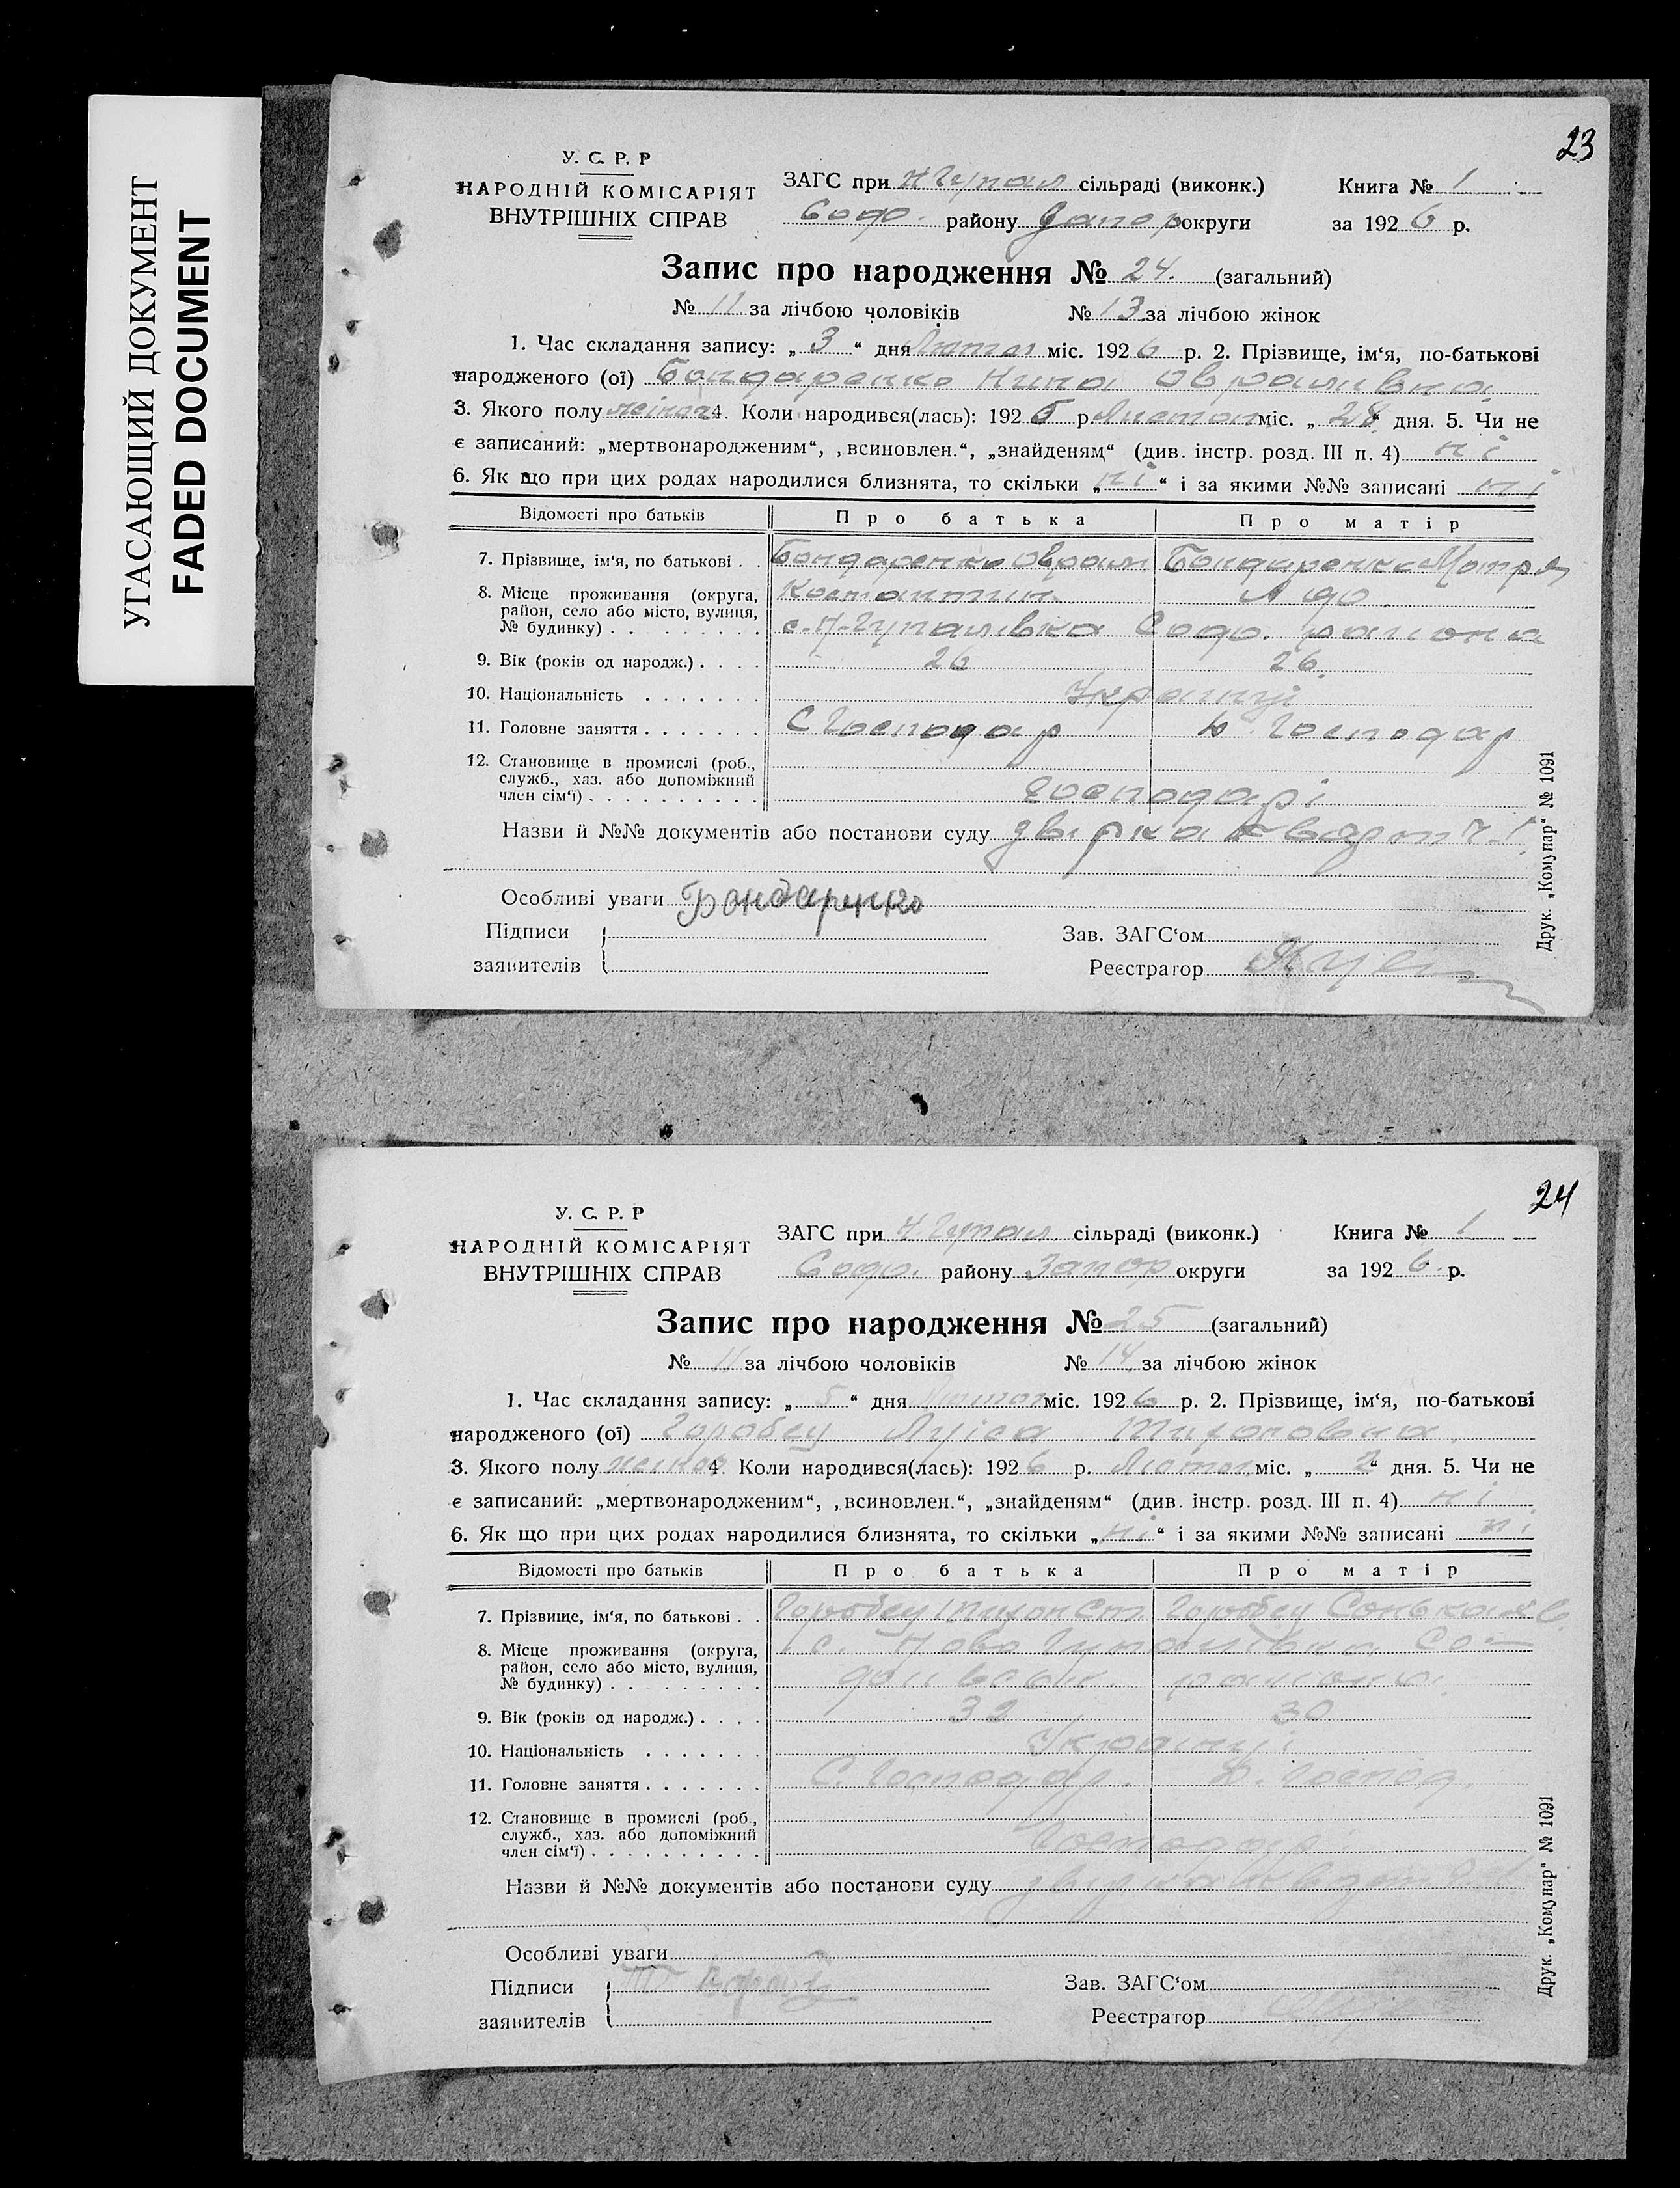 УГАСАЮЩИЙ ДОКУМЕНТ
FADED DOCUMENT
23
У. С. Р. Р
НАРОДНІЙ КОМІСАРІЯТ
ВНУТРІШНІХ СПРАВ
ЗАГС при Н Гупал сільраді (виконк.)
Софо. району Запор округи
Книга № 1
за 1926 р.
Запис про народження № 24. (загальний)
№ 11 за лічбою чоловіків № 13 за лічбою жінок
1. Час складання запису: „ 3 “ дня Лютог міс. 1926 р. 2. Прізвище, ім‘я, по-батькові
народженого (ої) Бондаренко Нина Оврамівна
3. Якого полу жіноч 4. Коли народився(лась): 1925 р. Листоп міс. „ 28 “ дня. 5. Чи не
є записаний: „мертвонародженим“, „всиновлен.“, „знайденям“ (див. інстр. розд. III п. 4) ні
6. Як що при цих родах народилися близнята, то скільки „ ні “ і за якими №№ записані ні
Відомості про батьків Про батька Про матір
7. Прізвище, ім‘я, по батькові . . Бондаренко Оврам Бондаренко Мотря
8. Місце проживання (округа, Костантин.
район, село або місто, вулиця,
№ будинку) . . . . . . . . . с. Н-Гупалівка Софо. района
9. Вік (років од народж.) . . . . 26 26
10. Національність . . . . . . . Українці
11. Головне заняття . . . . . . . С Господар Господар
12. Становище в промислі (роб.,
служб., хаз. або допоміжний
член сім‘ї) . . . . . . . . . . Господарі
Назви й №№ документів або постанови суду
Особливі уваги Бондаренко
Підписи Зав. ЗАГС‘ом
заявителів Реєстратор
Друк. „Комунар“ № 1091
24
У. С. Р. Р
НАРОДНІЙ КОМІСАРІЯТ
ВНУТРІШНІХ СПРАВ
ЗАГС при Н Гупал сільраді (виконк.)
Софо. району Запор округи
Книга № 1
за 1926 р.
Запис про народження № 25 (загальний)
№ 11 за лічбою чоловіків № 14 за лічбою жінок
1. Час складання запису: „ 5 “ дня Лютог міс. 1926 р. 2. Прізвище, ім‘я, по-батькові
народженого (ої) Горобец Луіса Тихоновна
3. Якого полу жіноч 4. Коли народився(лась): 1926 р. Лютог міс. „ 2 “ дня. 5. Чи не
є записаний: „мертвонародженим“, „всиновлен.“, „знайденям“ (див. інстр. розд. III п. 4) ні
6. Як що при цих родах народилися близнята, то скільки „ ні “ і за якими №№ записані ні
Відомості про батьків Про батька Про матір
7. Прізвище, ім‘я, по батькові . . Горобец Тихон Ст Горобец Сонька
8. Місце проживання (округа, с. Ново Гупалівка Со-
район, село або місто, вулиця,
№ будинку) . . . . . . . . . района
9. Вік (років од народж.) . . . . 32 30
10. Національність . . . . . . . Українці
11. Головне заняття . . . . . . . С. Господар. Господ.
12. Становище в промислі (роб.,
служб., хаз. або допоміжний
член сім‘ї) . . . . . . . . . . Господарі
Назви й №№ документів або постанови суду
Особливі уваги
Підписи Зав. ЗАГС‘ом
заявителів Реєстратор
Друк. „Комунар“ № 1091